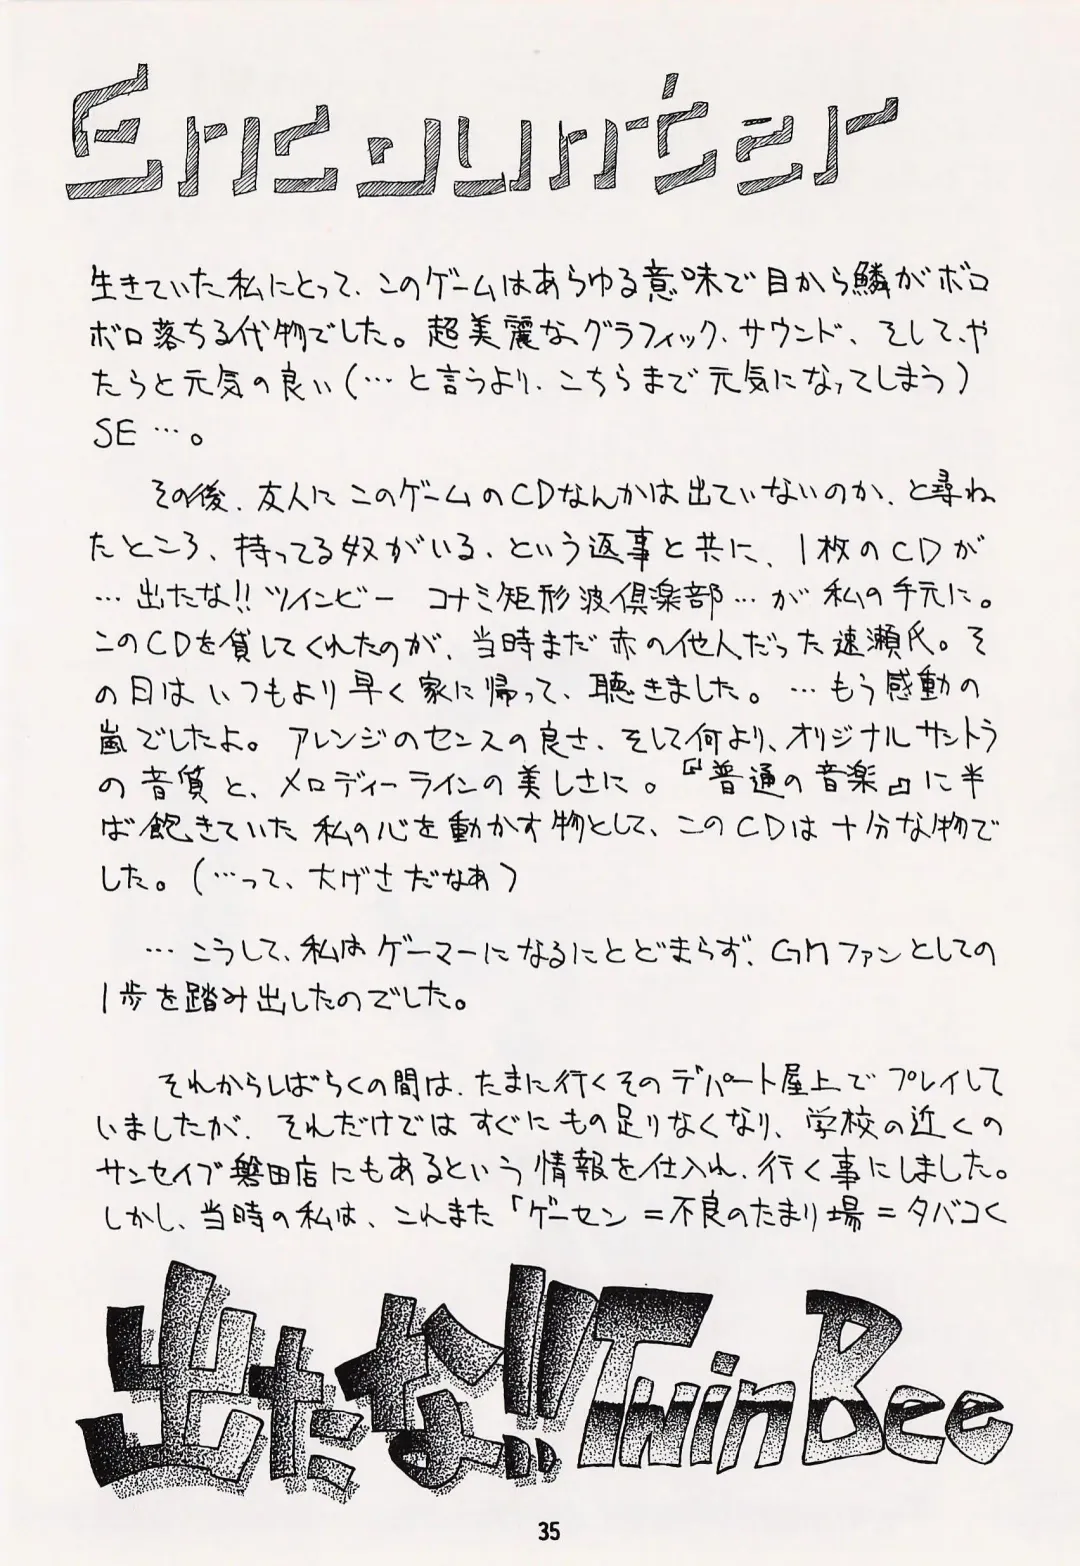 Encounter
生きていた私にとって、このゲームはあらゆる意味で目から鱗がボロ
ボロ落ちる代物でした。超美麗なグラフィック、サウンド、そして、や
たらと元気の良い(…と言うより、こちらまで元気になってしまう)
SE…。
その後、友人にこのゲームのCDなんかは出ていないのか、と尋ね
たところ、持ってる奴がいる、という返事と共に、1枚のCDが
…出たな!!ツインビー コナミ矩形波倶楽部…が私の手元に。
このCDを貸してくれたのが、当時まだ赤の他人だった速瀬氏。そ
の日はいつもより早く家に帰って、聴きました。…もう感動の
嵐でしたよ。アレンジのセンスの良さ、そして何より、オリジナルサントラ
の音質と、メロディーラインの美しさに。『普通の音楽』に半
ば飽きていた私の心を動かす物として、このCDは十分な物で
した。(…って、大げさだなあ)
…こうして、私はゲーマーになるにとどまらず、GMファンとしての
1歩を踏み出したのでした。
それからしばらくの間は、たまに行くそのデパート屋上でプレイして
いましたが、それだけではすぐにもの足りなくなり、学校の近くの
サンセイブ磐田店にもあるという情報を仕入れ、行く事にしました。
しかし、当時の私は、これまた「ゲーセン=不良のたまり場=タバコく
出たな!!TwinBee
35